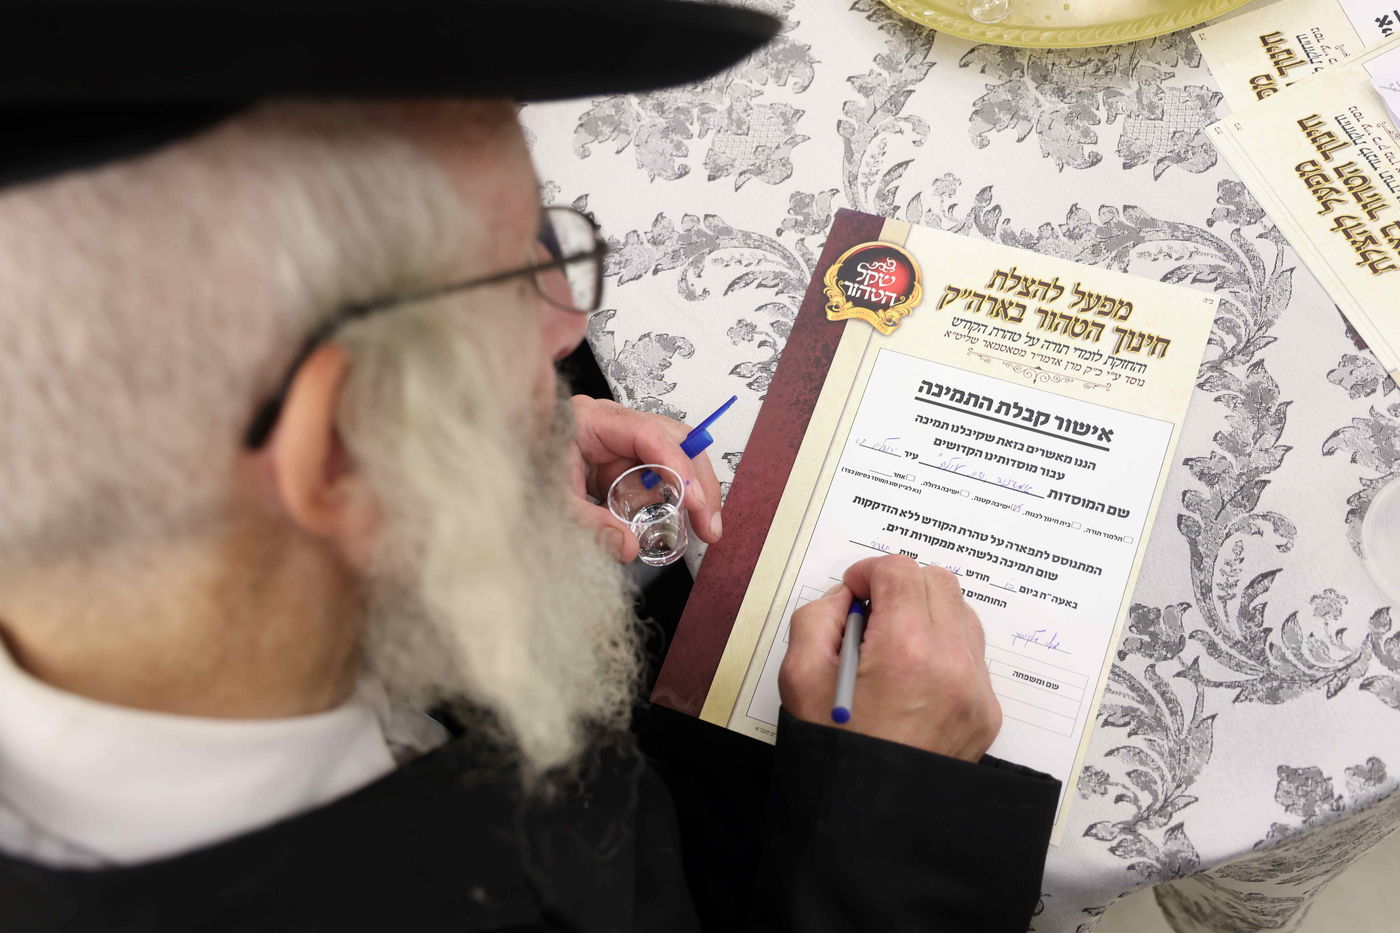 ב"ה
קרן
שקל
הטהור
מפעל להצלת
חינוך הטהור בארה"ק
והחזקת לומדי תורה על טהרת הקודש
נוסד ע"י כ"ק מרן אדמו"ר מסאטמאר שליט"א
אישור קבלת התמיכה
הננו מאשרים בזאת שקיבלנו תמיכה
עבור מוסדותינו הקדושים
שם המוסדות עיר
תלמוד תורה. בית חינוך לבנות. ישיבה קטנה. ישיבה גדולה. אחר
(נא לציין סוג המוסד בסימון בצד)
המתנוסס לתפארה על טהרת הקודש ללא הזדקקות
שום תמיכה כלשהיא ממקורות זרים.
באעה"ח ביום חודש שנת
החותמים
שם ומשפחה
מפעל להצלת
חינוך הטהור
והחזקת לומדי
חינוך
והחזקת ל